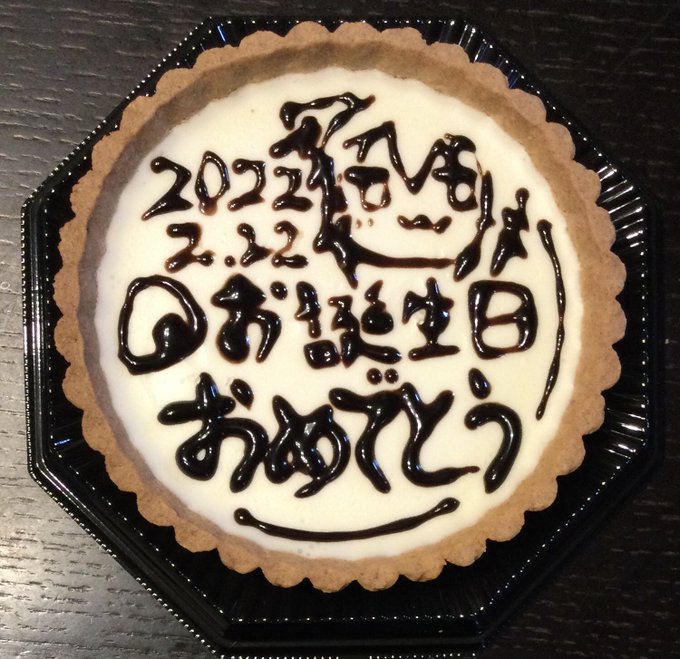 2022
2.22
お誕生日
おめでとう